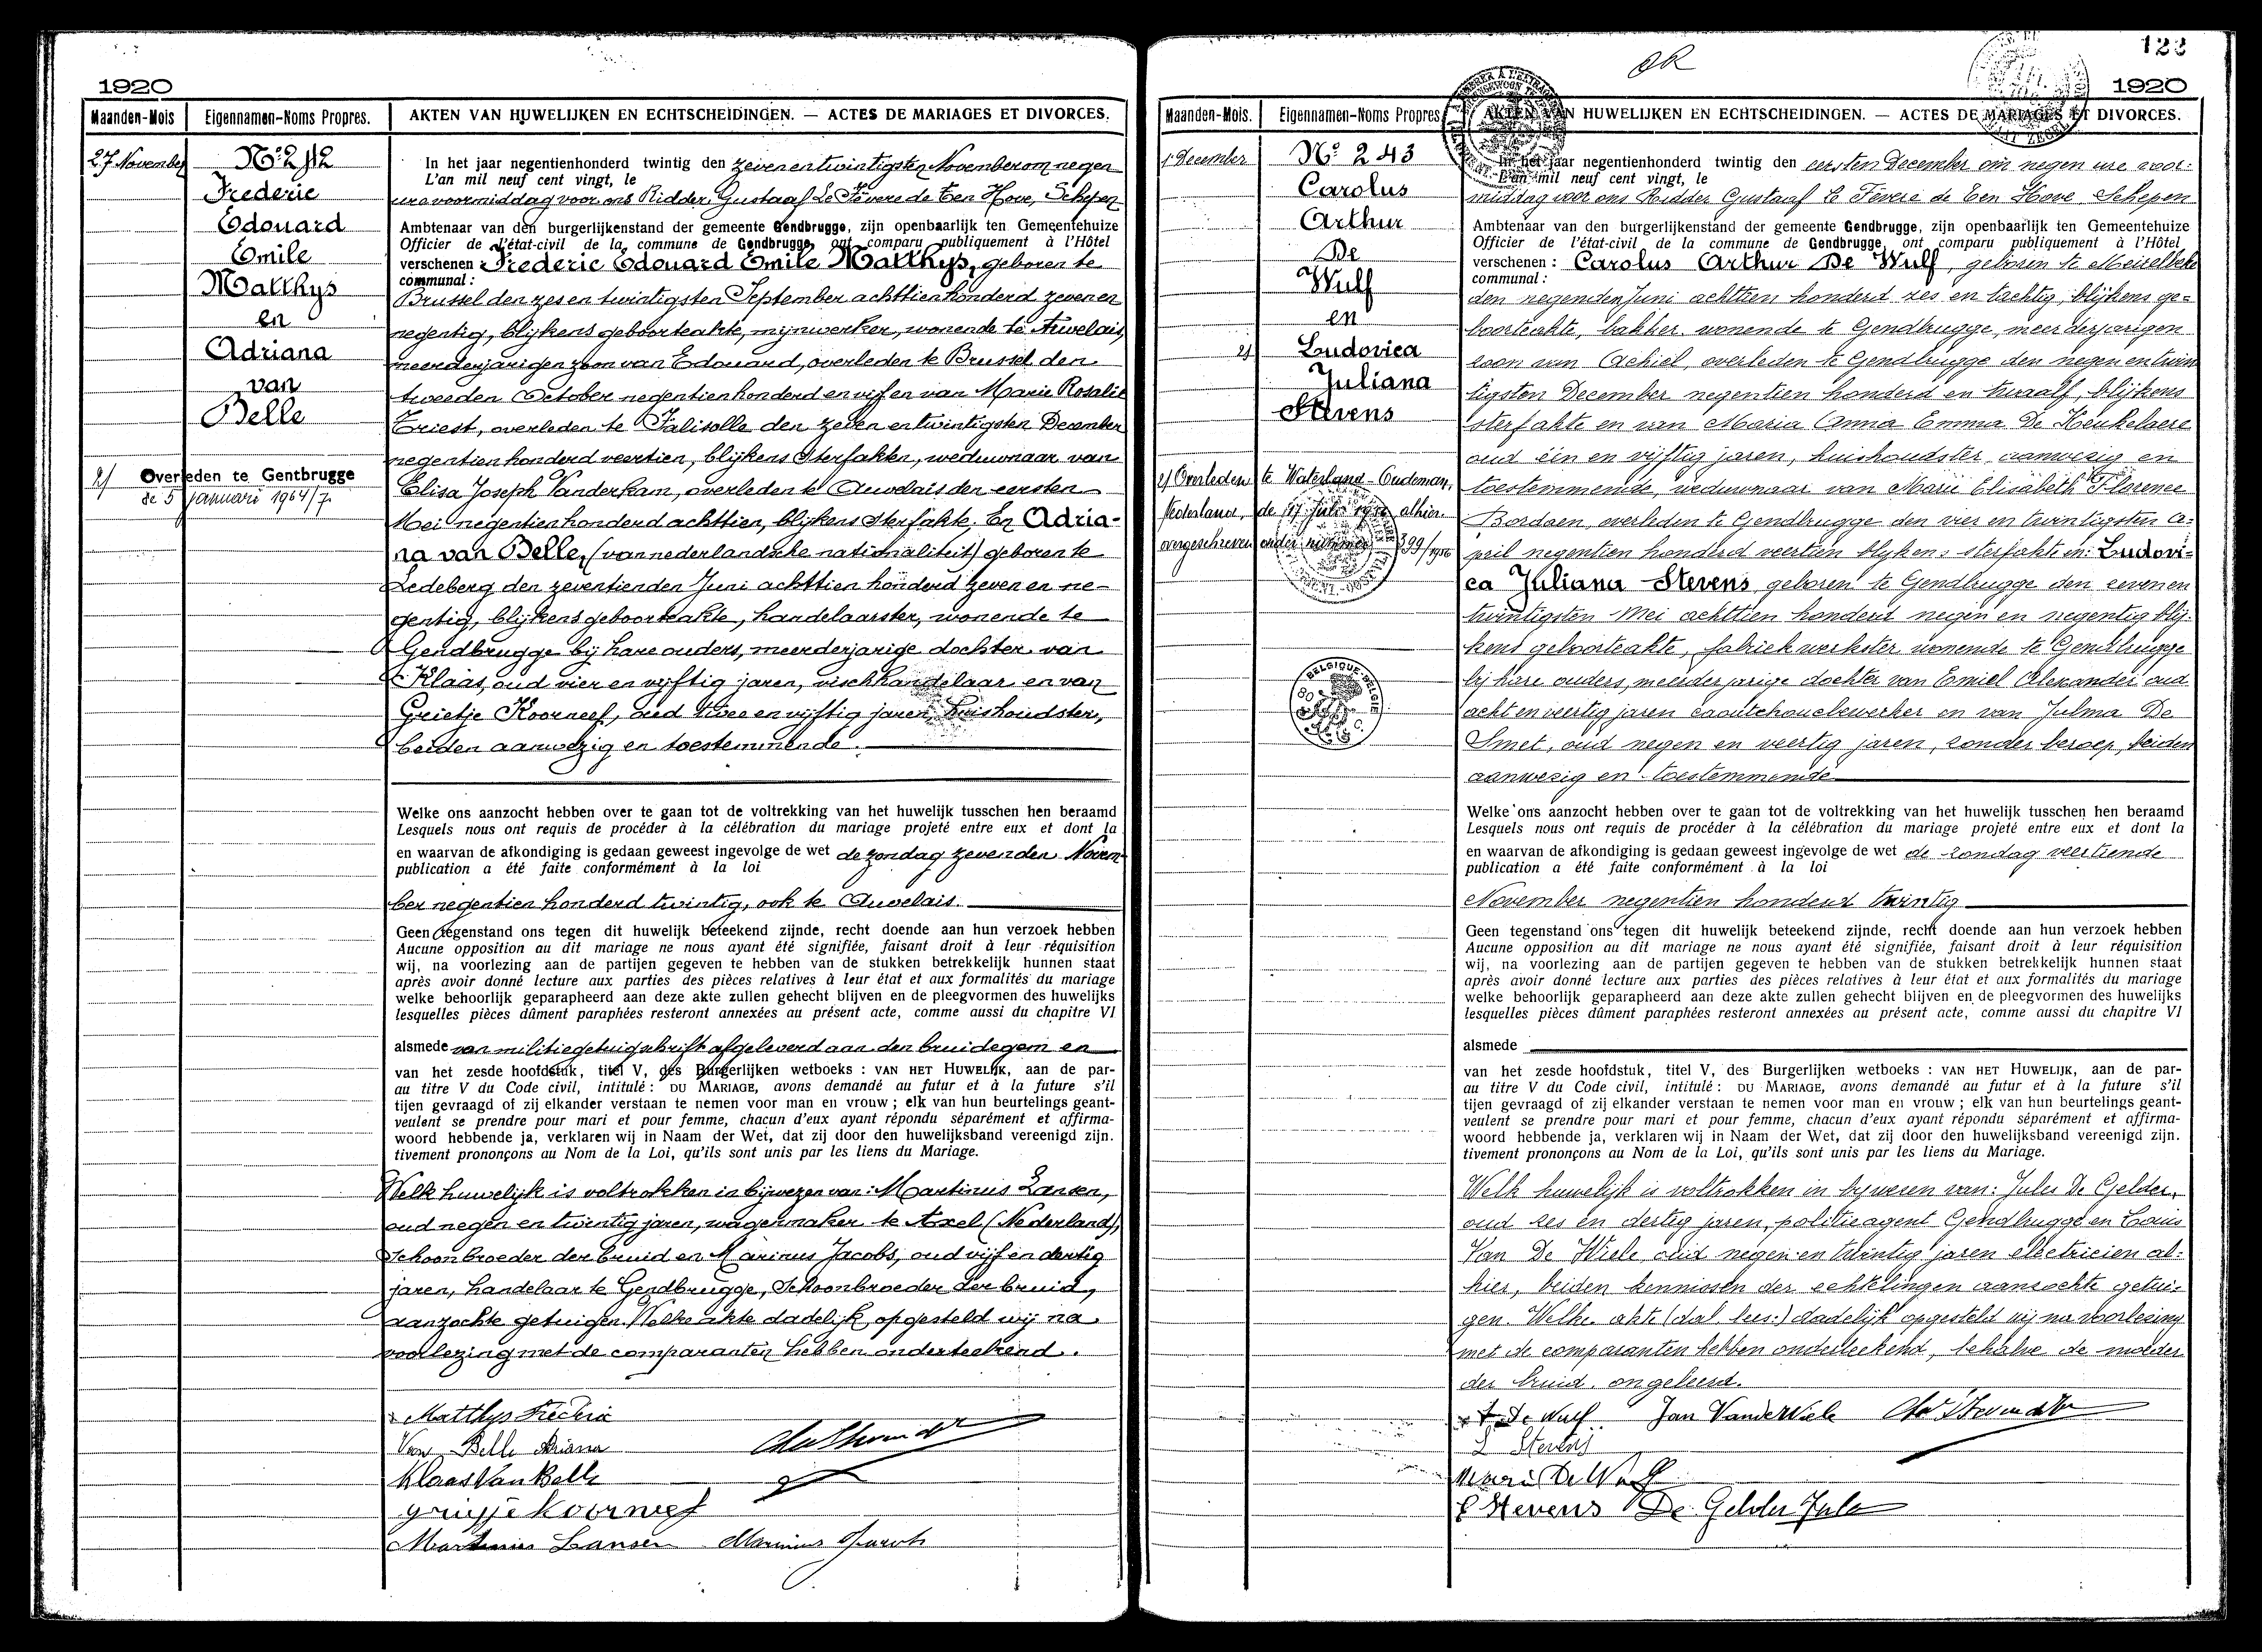 1920
Maanden-Mois
Eigennamen-Noms Propres.
AKTEN VAN HUWELIJKEN EN ECHTSCHEIDINGEN. — ACTES DE MARIAGES ET DIVORCES.
27 November
No. 242
Frederic
Edouard
Emile
Matthys
en
Adriana
van
Belle
2/ Overleden te Gentbrugge
de 5 januari 1964/7.
In het jaar negentienhonderd twintig den zevenentwintigsten November om negen
L'an mil neuf cent vingt, le
ure voormiddag voor ons Ridder Gustaaf Le Fèvere de Ten Hove, Schepen
Ambtenaar van den burgerlijkenstand der gemeente Gendbrugge, zijn openbaarlijk ten Gemeentehuize
Officier de l'état-civil de la commune de Gendbrugge, ont comparu publiquement à l'Hôtel
verschenen : Frederic Edouard Emile Matthys, geboren te
communal :
Brussel den zes en twintigsten September achttien honderd zeven en
negentig, blijkens geboorteakte, mijnwerker, wonende te Auvelais,
meerderjarigen zoon van Edouard, overleden te Brussel den
tweeden October negentienhonderd en vijf en van Marie Rosalie
Triest, overleden te Falisolle den zeven entwintigsten December
negentienhonderd veertien, blijkens sterfakten, weduwnaar van
Elisa Joseph Vanderkam, overleden te Auvelais den eersten
Mei negentienhonderd achttien, blijkens sterfakte. En Adria-
na van Belle, (van nederlandsche nationaliteit) geboren te
Ledeberg den zeventienden Juni achttien honderd zeven en ne-
gentig, blijkens geboorteakte, handelaarster, wonende te
Gendbrugge bij hare ouders, meerderjarige dochter van
Klaas, oud vier en vijftig jaren, vischhandelaar en van
Grietje Koorneef, oud twee en vijftig jaren, huishoudster,
beiden aanwezig en toestemmende.
Welke ons aanzocht hebben over te gaan tot de voltrekking van het huwelijk tusschen hen beraamd
Lesquels nous ont requis de procéder à la célébration du mariage projeté entre eux et dont la
en waarvan de afkondiging is gedaan geweest ingevolge de wet de zondag zevenden Novem-
publication a été faite conformément à la loi
ber negentien honderd twintig, ook te Auvelais.
Geen tegenstand ons tegen dit huwelijk beteekend zijnde, recht doende aan hun verzoek hebben
Aucune opposition au dit mariage ne nous ayant été signifiée, faisant droit à leur réquisition
wij, na voorlezing aan de partijen gegeven te hebben van de stukken betrekkelijk hunnen staat
après avoir donné lecture aux parties des pièces relatives à leur état et aux formalités du mariage
welke behoorlijk geparapheerd aan deze akte zullen gehecht blijven en de pleegvormen des huwelijks
lesquelles pièces dûment paraphées resteront annexées au présent acte, comme aussi du chapitre VI
alsmede van militiegetuigschrift afgeleverd aan den bruidegom en
van het zesde hoofdstuk, titel V, des Burgerlijken wetboeks : VAN HET HUWELIJK, aan de par-
au titre V du Code civil, intitulé : DU MARIAGE, avons demandé au futur et à la future s'il
tijen gevraagd of zij elkander verstaan te nemen voor man en vrouw ; elk van hun beurtelings geant-
veulent se prendre pour mari et pour femme, chacun d'eux ayant répondu séparément et affirma-
woord hebbende ja, verklaren wij in Naam der Wet, dat zij door den huwelijksband vereenigd zijn.
tivement prononçons au Nom de la Loi, qu'ils sont unis par les liens du Mariage.
Welk huwelijk is voltrokken in bijwezen van: Martinus Lansen,
oud negen en twintig jaren, wagenmaker te Axel (Nederland),
schoonbroeder der bruid en Marinus Jacobs, oud vijf en dertig
jaren, handelaar te Gendbrugge, schoonbroeder der bruid,
aanzochte getuigen. Welke akte dadelijk opgesteld wij na
voorlezing met de comparanten hebben onderteekend.
Matthys Frederic
Van Belle Adriana
Klaas Van Belle
grietje koorneef
Martinus Lansen Marinus Jacobs
OR
122
1920
Maanden-Mois.
Eigennamen-Noms Propres
AKTEN VAN HUWELIJKEN EN ECHTSCHEIDINGEN. — ACTES DE MARIAGES ET DIVORCES.
1 December
No. 243
Carolus
Arthur
De
Wulf
en
2/ Ludovica
Juliana
Stevens
2/ Overleden te Waterland-Oudeman,
Nederland, de alhier
overgeschreven onder nummer 399/1956
In het jaar negentienhonderd twintig den eersten December om negen ure voor-
L'an mil neuf cent vingt, le
middag voor ons Ridder Gustaaf Le Fèvere de Ten Hove Schepen
Ambtenaar van den burgerlijkenstand der gemeente Gendbrugge, zijn openbaarlijk ten Gemeentehuize
Officier de l'état-civil de la commune de Gendbrugge, ont comparu publiquement à l'Hôtel
verschenen : Carolus Arthur De Wulf, geboren te Meirelbeke
communal :
den negenden Juni achttien honderd zes en tachtig, blijkens ge-
boorteakte, bakker wonende te Gendbrugge, meerderjarigen
zoon van Achiel, overleden te Gendbrugge den negen entwin
tigsten December negentien honderd en twaalf, blijkens
sterfakte en van Maria Anna Emma De Keukelaere
oud één en vijftig jaren, huishoudster, aanwezig en
toestemmende, weduwnaar van Marie Elisabeth Florence
Bordaen, overleden te Gendbrugge den vier en twintigsten A-
pril negentien honderd veertien blijkens sterfakte en: Ludovi-
ca Juliana Stevens, geboren te Gendbrugge den zeven en
twintigsten Mei achttien honderd negen en negentig blij-
kens geboorteakte, fabriekwerkster, wonende te Gendbrugge
bij hare ouders, meerderjarige dochter van Emiel Alexander oud
acht en veertig jaren caoutchoucbewerker en van Julma De
Smet, oud negen en veertig jaren, zonder beroep, beiden
aanwezig en toestemmende
Welke ons aanzocht hebben over te gaan tot de voltrekking van het huwelijk tusschen hen beraamd
Lesquels nous ont requis de procéder à la célébration du mariage projeté entre eux et dont la
en waarvan de afkondiging is gedaan geweest ingevolge de wet de zondag veertiende
publication a été faite conformément à la loi
November negentien honderd twintig
Geen tegenstand ons tegen dit huwelijk beteekend zijnde, recht doende aan hun verzoek hebben
Aucune opposition au dit mariage ne nous ayant été signifiée, faisant droit à leur réquisition
wij, na voorlezing aan de partijen gegeven te hebben van de stukken betrekkelijk hunnen staat
après avoir donné lecture aux parties des pièces relatives à leur état et aux formalités du mariage
welke behoorlijk geparapheerd aan deze akte zullen gehecht blijven en de pleegvormen des huwelijks
lesquelles pièces dûment paraphées resteront annexées au présent acte, comme aussi du chapitre VI
alsmede
van het zesde hoofdstuk, titel V, des Burgerlijken wetboeks : VAN HET HUWELIJK, aan de par-
au titre V du Code civil, intitulé : DU MARIAGE, avons demandé au futur et à la future s'il
tijen gevraagd of zij elkander verstaan te nemen voor man en vrouw ; elk van hun beurtelings geant-
veulent se prendre pour mari et pour femme, chacun d'eux ayant répondu séparément et affirma-
woord hebbende ja, verklaren wij in Naam der Wet, dat zij door den huwelijksband vereenigd zijn.
tivement prononçons au Nom de la Loi, qu'ils sont unis par les liens du Mariage.
Welk huwelijk is voltrokken in bijwezen van: Jules De Gelder,
oud zes en dertig jaren, politieagent Gendbrugge en Louis
Van De Wiele oud negen en twintig jaren electricien al-
hier, beiden kennissen der echtelingen aanzochte getui-
gen. Welke akte (dal lees:) dadelijk opgesteld wij na voorlezing
met de comparanten hebben onderteekend, behalve de moeder
der bruid, ongeleerd.
A De Wulf Jan VandeWiele
L Stevens
E Stevens De Gelder Jules
BELGIQUE-BELGIE